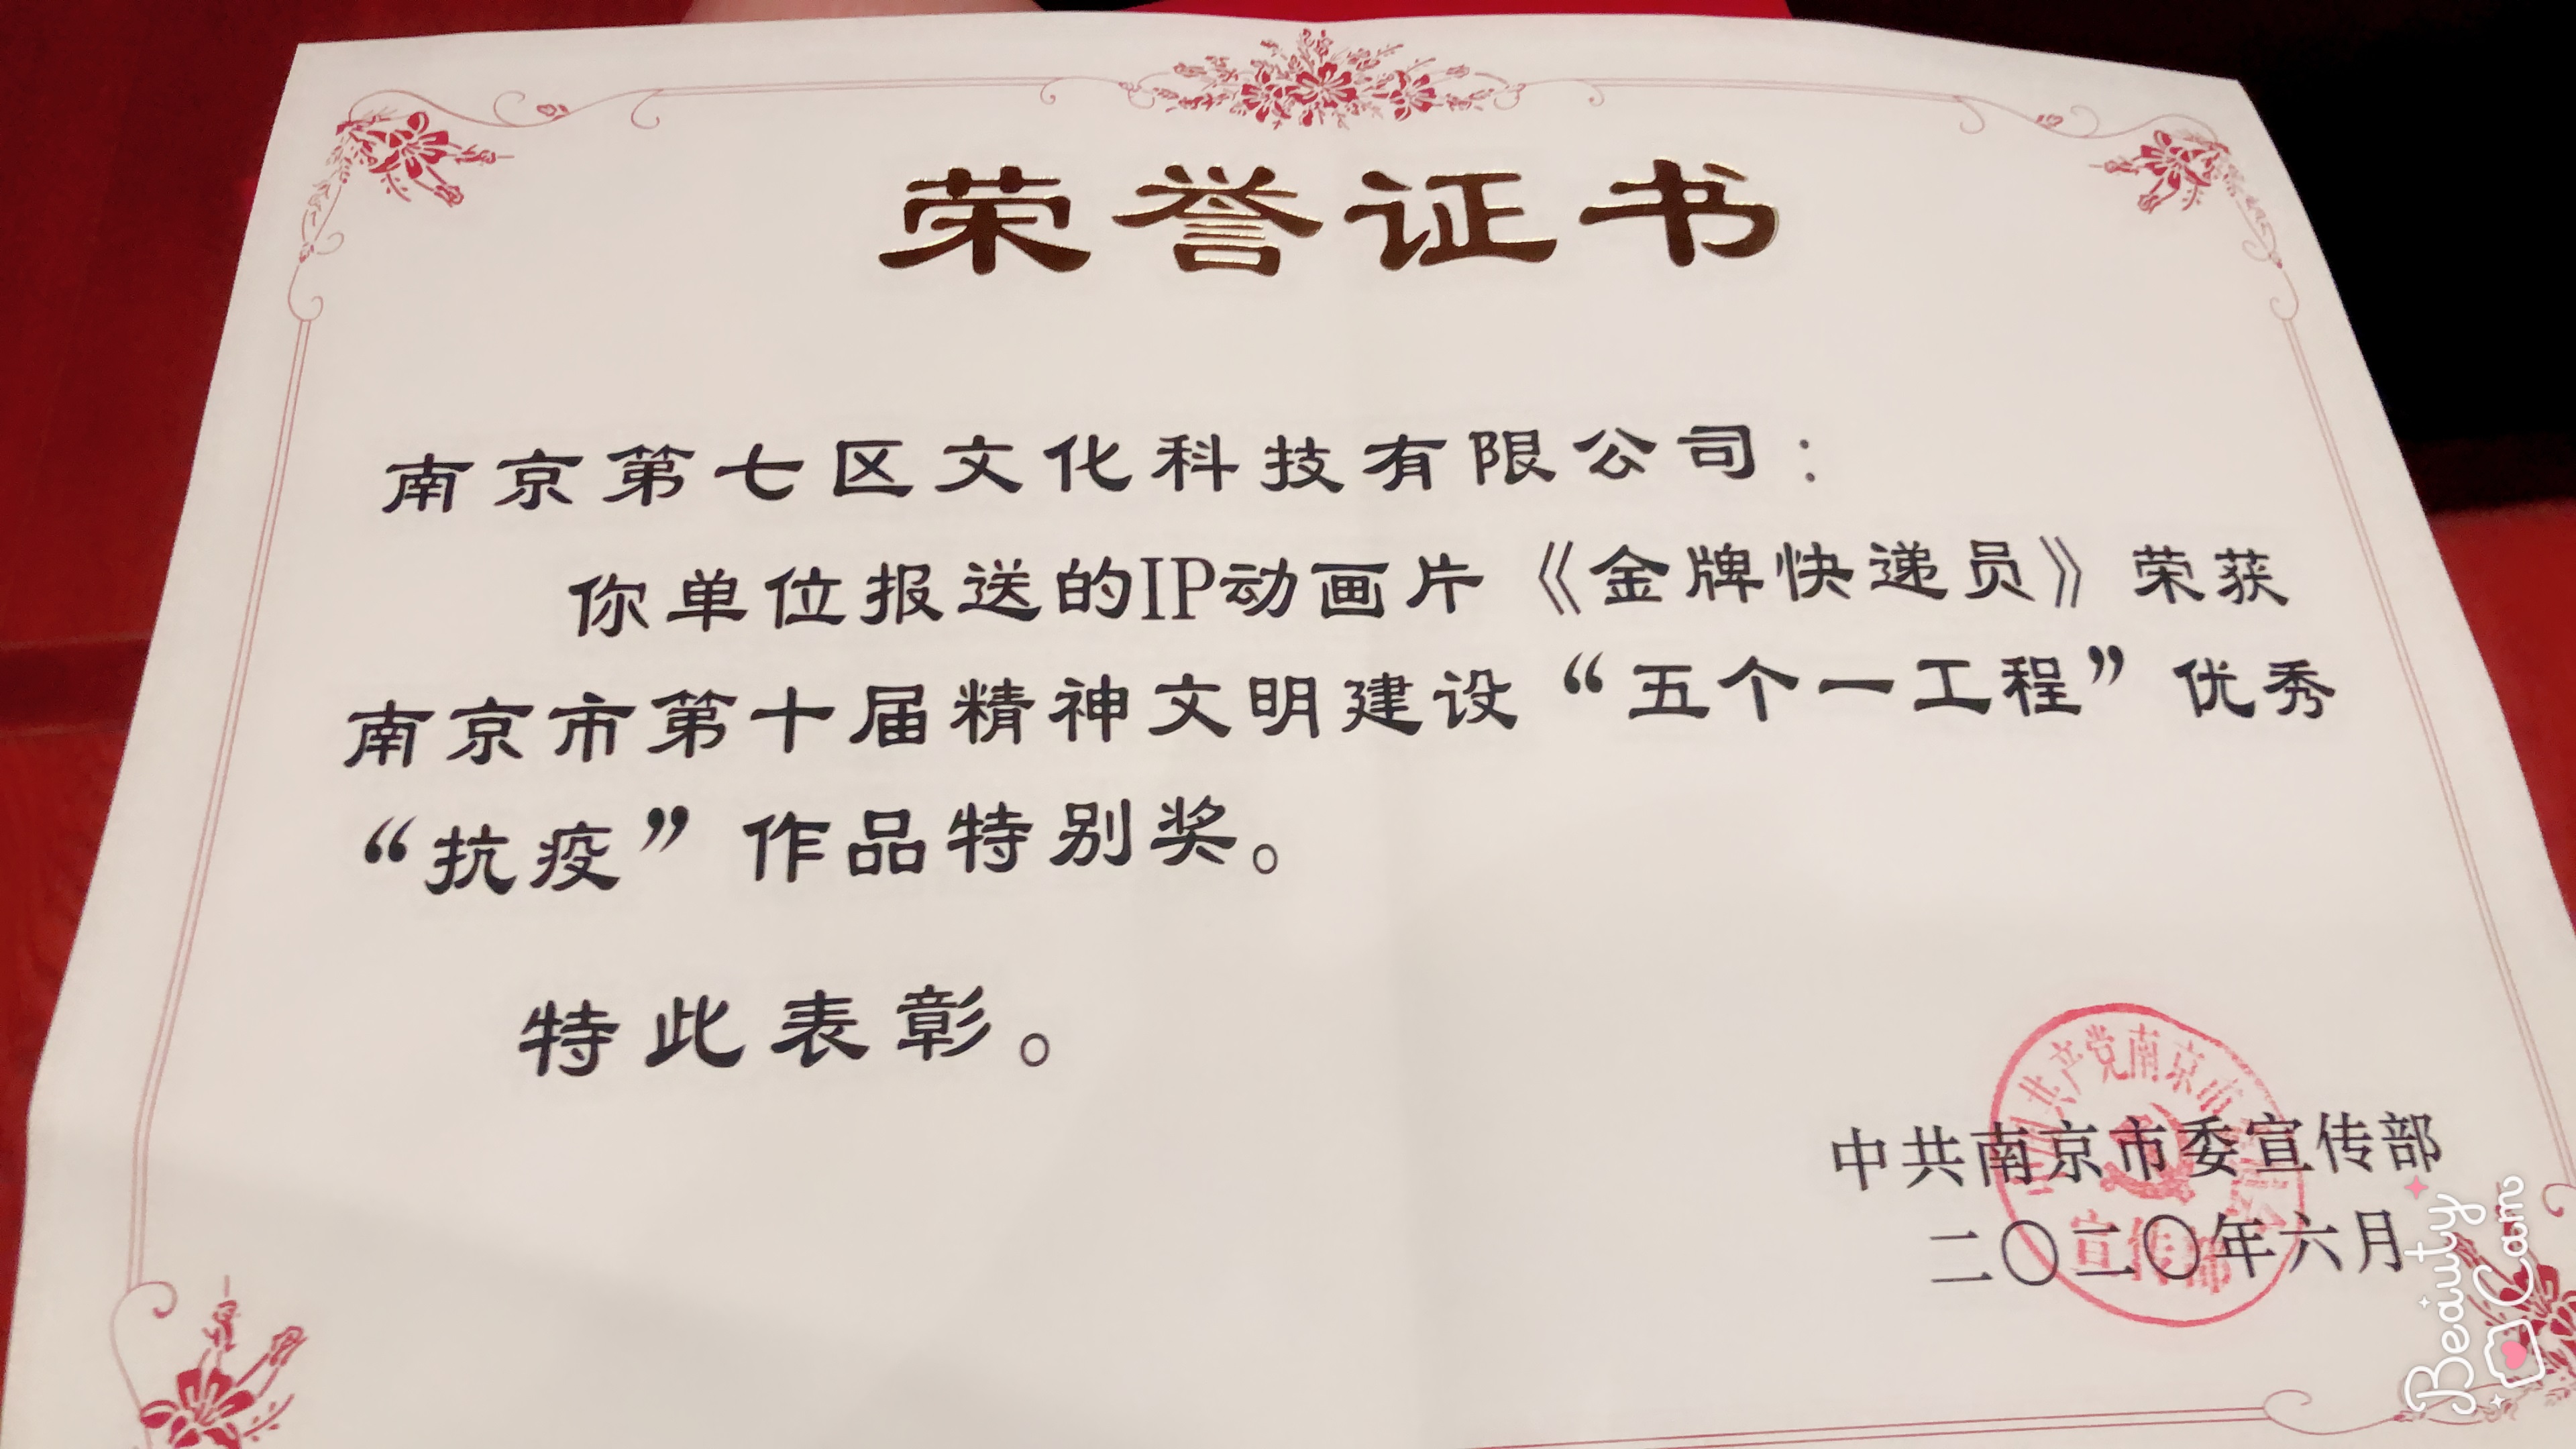 荣誉证书
南京第七区文化科技有限公司：
你单位报送的IP动画片《金牌快递员》荣获
南京市第十届精神文明建设“五个一工程”优秀
“抗疫”作品特别奖。
特此表彰。
共产党南京市
宣传部
中共南京市委宣传部
二〇二〇年六月
Beauty Cam